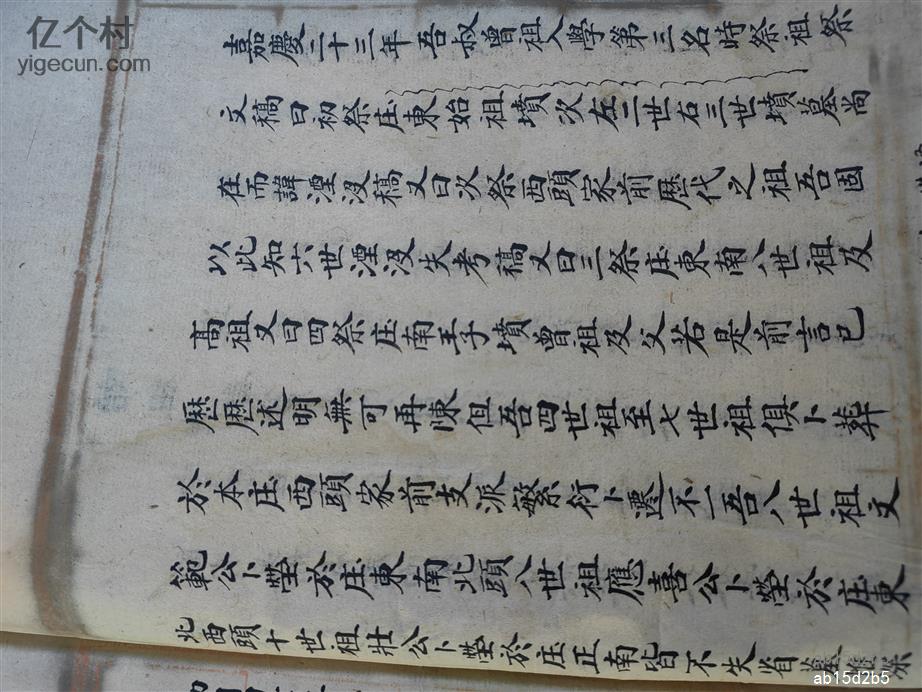 亿个村
yigecun.com
嘉慶二十三年吾叔曾祖入學第三名時祭祖祭
文稿曰初祭庄東始祖墳次左二世右三世墳墓尚
在而諱湮没稿又曰次祭西頭家前厯代之祖吾因
以此知六世湮没失考稿又曰三祭庄東南八世祖及
高祖又曰四祭庄南王子墳曾祖及父若是前言已
厯厯述明無可再陳但吾四世祖至七世祖俱卜葬
於本庄西頭家前支派繁衍卜遷不一吾八世祖文
範公卜塋於庄東南北頭八世祖應喜公卜塋於庄東
北西頭十世祖壯公卜塋於庄正南皆不失省墓
ab15d2b5